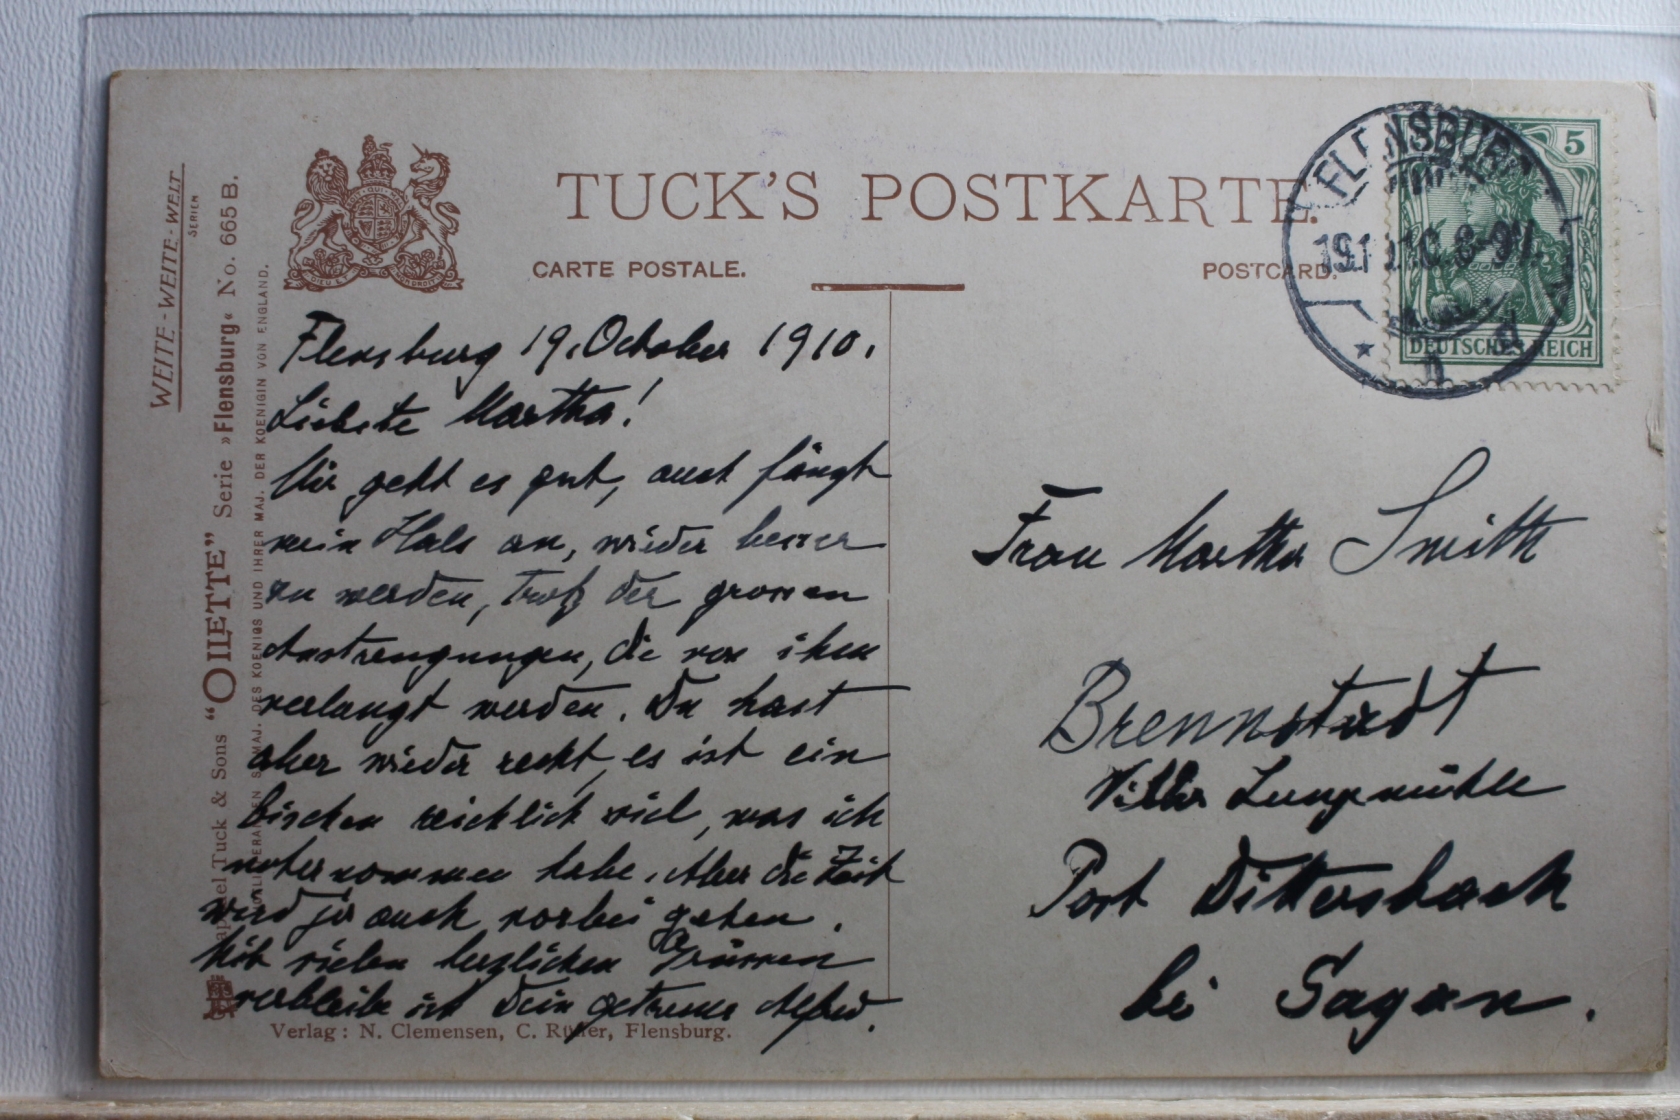 WEITE-WEITE-WELT
SERIEN
Raphael Tuck & Sons “OILETTE” Serie »Flensburg« No. 665 B.
MAJ. DES KOENIGS UND IHRER MAJ. DER KOENIGIN VON ENGLAND.
TUCK'S POSTKARTE.
CARTE POSTALE.
POSTCARD.
FLENSBURG
19.10.10. 8-9V.
5
DEUTSCHES REICH
Flensburg 19. October 1910.
Liebste Martha!
Mir geht es gut, auch fängt
mein Hals an, wieder besser
zu werden, trotz der grossen
Anstrengungen, die von ihm
verlangt werden. Du hast
aber wieder recht, es ist ein
bischen reichlich viel, was ich
unternommen habe. Aber die Zeit
wird ja auch vorbei gehen.
Mit vielen herzlichen Grüssen
verbleibe ich Dein getreuer Alfred.
Verlag: N. Clemensen, C. Rüter, Flensburg.
Frau Martha Smith
Brennstadt
Villa
Post Dittersbach
bei Sagan.